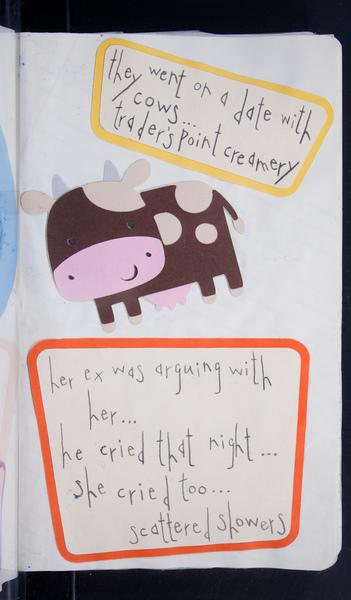 they went on a date with
cows...
trader's point creamery
her ex was arguing with
her...
he cried that night...
she cried too...
scattered showers